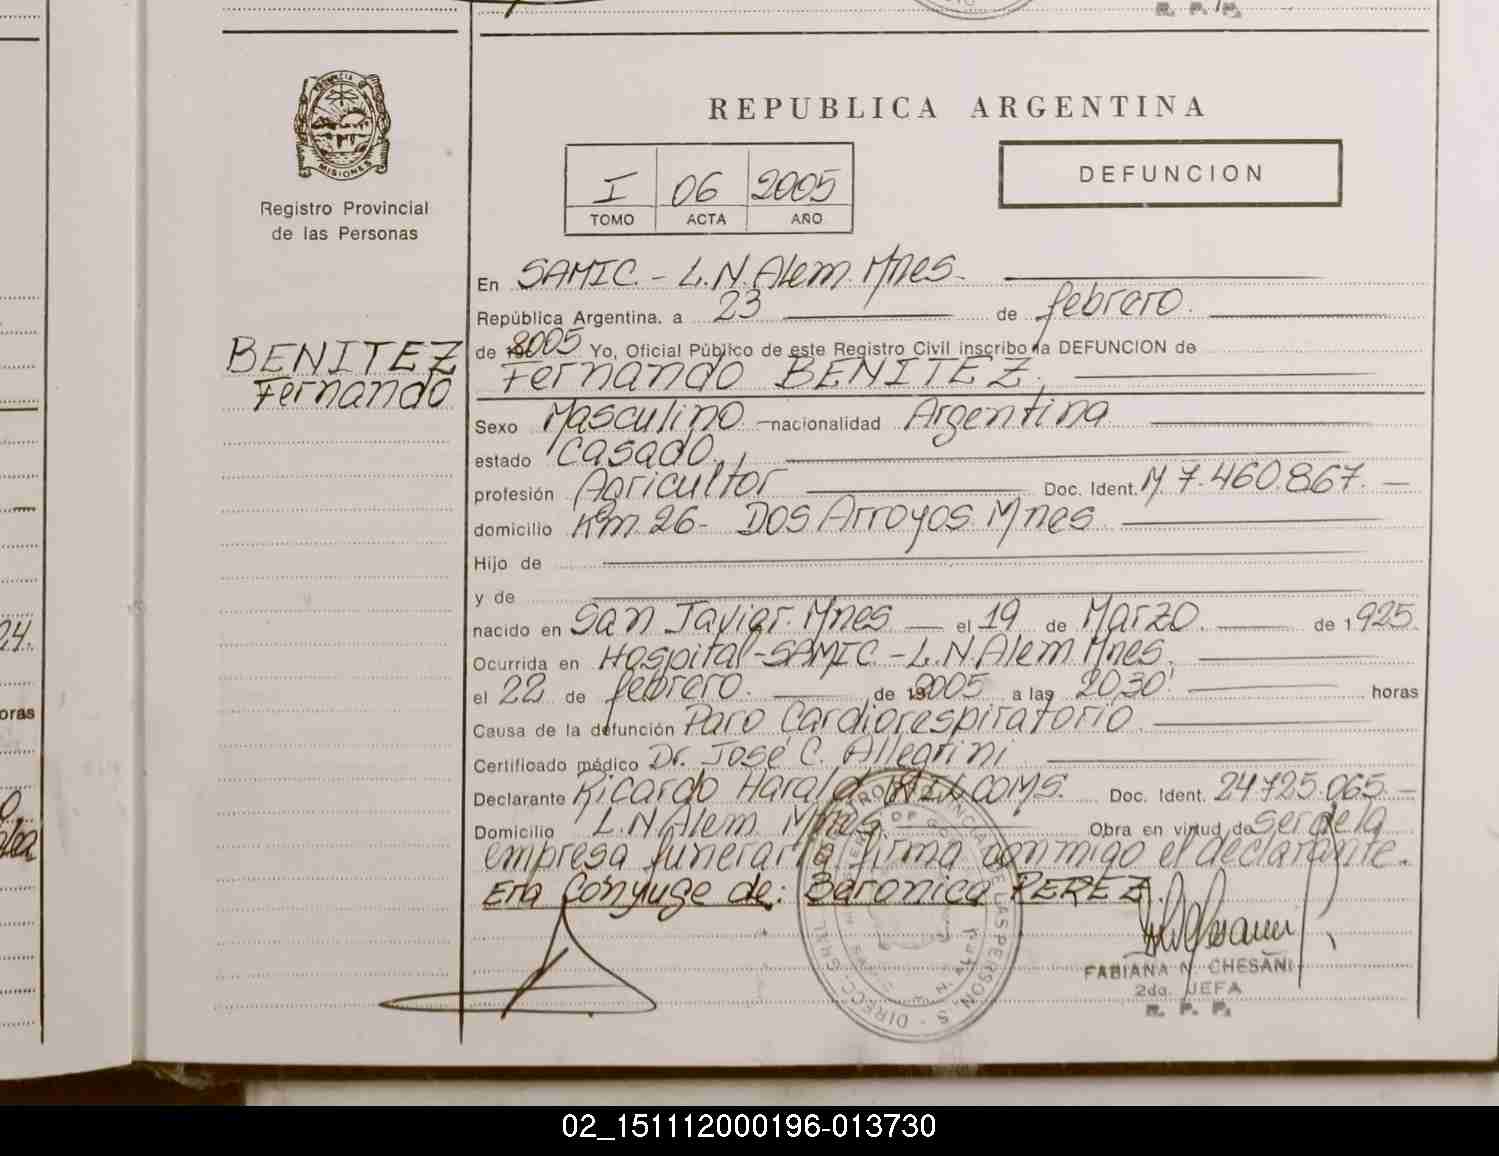 PROVINCIA DE
MISIONES
Registro Provincial
de las Personas
BENITEZ
Fernando
REPUBLICA ARGENTINA
I 06 2005
TOMO ACTA AÑO
DEFUNCION
En SAMIC - L.N.Alem Mnes.
República Argentina, a 23 de febrero.
de 2005 Yo, Oficial Público de este Registro Civil inscribo la DEFUNCION de
Fernando BENITEZ,
Sexo Masculino - nacionalidad Argentina
estado Casado.
profesión Agricultor Doc. Ident. M 7.460.867. -
domicilio Km 26 - Dos Arroyos Mnes
Hijo de
y de
nacido en San Javier. Mnes - el 19 de Marzo de 1925.
Ocurrida en Hospital - SAMIC - L.N.Alem Mnes.
el 22 de febrero. de 2005 a las 2030' horas
Causa de la defunción Paro Cardiorespiratorio
Certificado médico Dr. José C. Allegrini
Declarante Ricardo Harald Doc. Ident. 24725.065. -
Domicilio L.N.Alem Mnes. Obra en virtud de ser de la
empresa funeraria firma conmigo el declarante.
Era Cónyuge de: Baronica PEREZ.
FABIANA N. CHESANI
2da. JEFA
R. P. P.
24.
oras
02_151112000196-013730